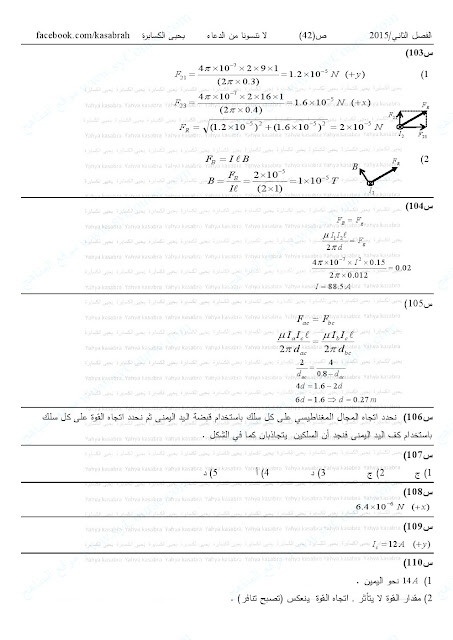 الفصل الثاني/2015 ص(42) لا تنسونا من الدعاء يحيى الكسابرة facebook.com/kasabrah
س103)
1) F₂₁ = (4π×10⁻⁷×2×9×1)/(2π×0.3) = 1.2×10⁻⁵ N (+y)
F₂₃ = (4π×10⁻⁷×2×16×1)/(2π×0.4) = 1.6×10⁻⁵ N (+x)
F_R = √((1.2×10⁻⁵)² + (1.6×10⁻⁵)²) = 2×10⁻⁵ N
2) F_B = I ℓ B
B = F_B/Iℓ = (2×10⁻⁵)/(2×1) = 1×10⁻⁵ T
س104)
F_B = F_g
(μ I₁I₂ℓ)/(2π d) = F_g
(4π×10⁻⁷×I²×0.15)/(2π×0.012) = 0.02
I = 88.5 A
س105)
F_ac = F_bc
(μ I_a I_c ℓ)/(2π d_ac) = (μ I_b I_c ℓ)/(2π d_bc)
2/d_ac = 4/(0.8 − d_ac)
4d = 1.6 − 2d
6d = 1.6 ⇒ d = 0.27 m
س106) نحدد اتجاه المجال المغناطيسي على كل سلك باستخدام قبضة اليد اليمنى ثم نحدد اتجاه القوة على كل سلك
باستخدام كف اليد اليمنى فنجد أن السلكين يتجاذبان كما في الشكل .
س107)
1) ج 2) ج 3) د 4) أ 5) د
س108)
6.4×10⁻⁶ N (+x)
س109)
I = 12 A (+y)
س110)
1) 14 A نحو اليمين .
2) مقدار القوة لا يتأثر . اتجاه القوة ينعكس (تصبح تنافر) .